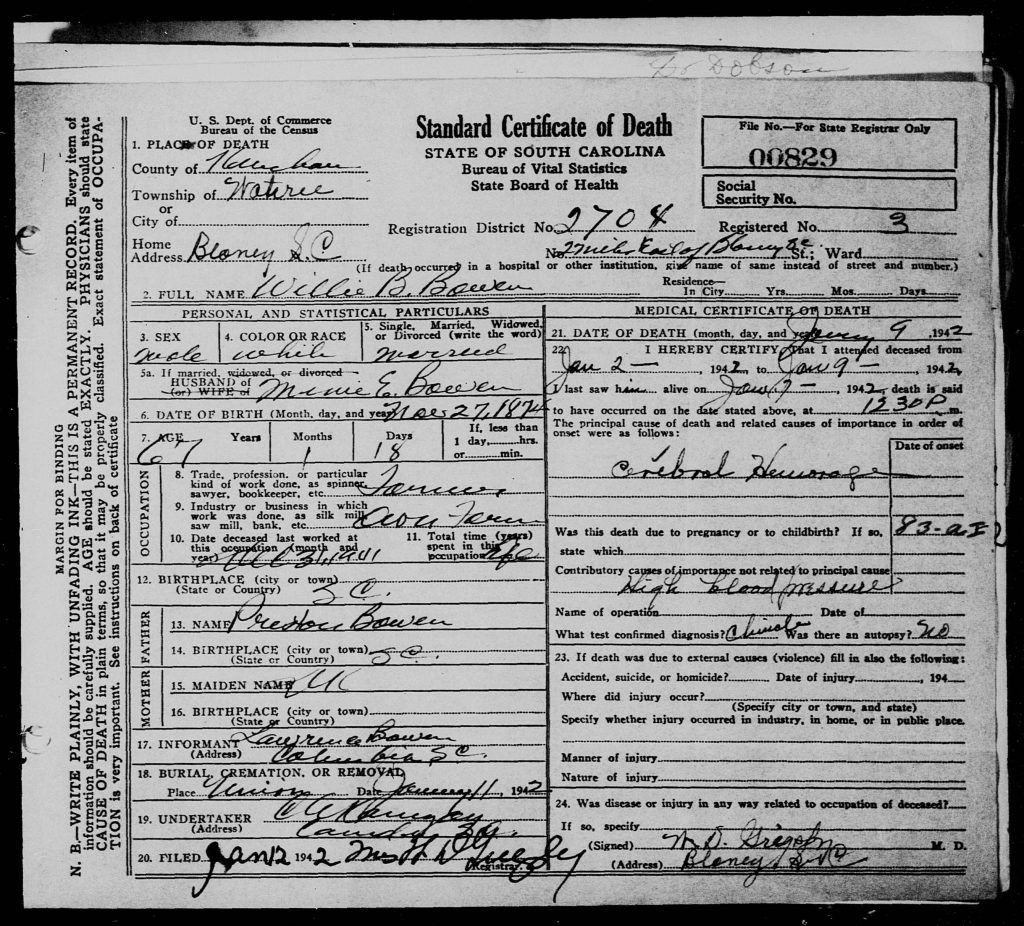 Dr Dobson
U. S. Dept. of Commerce
Bureau of the Census
Standard Certificate of Death
STATE OF SOUTH CAROLINA
Bureau of Vital Statistics
State Board of Health
File No.—For State Registrar Only
00829
Social
Security No.
1. PLACE OF DEATH
County of Kershaw
Township of Wateree
or
City of
Home
Address Blaney S.C
Registration District No. 2704 Registered No. 3
No. 2 miles East of Blaney SC St.; Ward
(If death occurred in a hospital or other institution, give name of same instead of street and number.)
2. FULL NAME Willie B. Bowen
Residence—
In City Yrs. Mos. Days
PERSONAL AND STATISTICAL PARTICULARS
3. SEX
male
4. COLOR OR RACE
white
5. Single, Married, Widowed,
or Divorced (write the word)
married
5a. If married, widowed, or divorced
HUSBAND of
(or) WIFE of
E. Bowen
6. DATE OF BIRTH (Month, day, and year) Nov 27, 1874
7. AGE Years Months Days
67 1 18
If, less than
1 day, hrs.
or min.
OCCUPATION
8. Trade, profession, or particular
kind of work done, as spinner,
sawyer, bookkeeper, etc. Farmer
9. Industry or business in which
work was done, as silk mill,
saw mill, bank, etc. own Farm
10. Date deceased last worked at
this occupation (month and
year)
11. Total time (years)
spent in this
occupation life
12. BIRTHPLACE (city or town)
(State or Country) S.C.
FATHER
13. NAME Preston Bowen
14. BIRTHPLACE (city or town)
(State or Country) S.C.
MOTHER
15. MAIDEN NAME
16. BIRTHPLACE (city or town)
(State or Country)
17. INFORMANT Lawrence Bowen
(Address) Columbia S.C.
18. BURIAL, CREMATION, OR REMOVAL
Place Union Date January 11, 1942
19. UNDERTAKER
(Address) Camden
20. FILED Jan 12 1942 Mrs
(Registrar.)
MEDICAL CERTIFICATE OF DEATH
21. DATE OF DEATH (month, day, and year) 9, 1942
22. I HEREBY CERTIFY, That I attended deceased from
Jan 2 —, 1942, to Jan 9 —, 1942,
I last saw him alive on Jan 9 —, 1942, death is said
to have occurred on the date stated above, at 1230 P. m.
The principal cause of death and related causes of importance in order of
onset were as follows:
Date of onset
Cerebral Hemorage
Was this death due to pregnancy or to childbirth? If so, 83-a
state which
Contributory causes of importance not related to principal cause
High blood pressure
Name of operation Date of
What test confirmed diagnosis? Was there an autopsy? No
23. If death was due to external causes (violence) fill in also the following:
Accident, suicide, or homicide? Date of injury , 194
Where did injury occur?
(Specify city or town, and state)
Specify whether injury occurred in industry, in home, or in public place.
Manner of injury
Nature of injury
24. Was disease or injury in any way related to occupation of deceased?
If so, specify
(Signed) W. D. M. D.
(Address) Blaney, S.C
MARGIN FOR BINDING
N. B.—WRITE PLAINLY, WITH UNFADING INK—THIS IS A PERMANENT RECORD. Every item of
information should be carefully supplied. AGE should be stated EXACTLY. PHYSICIANS should state
CAUSE OF DEATH in plain terms, so that it may be properly classified. Exact statement of OCCUPA-
TION is very important. See instructions on back of certificate